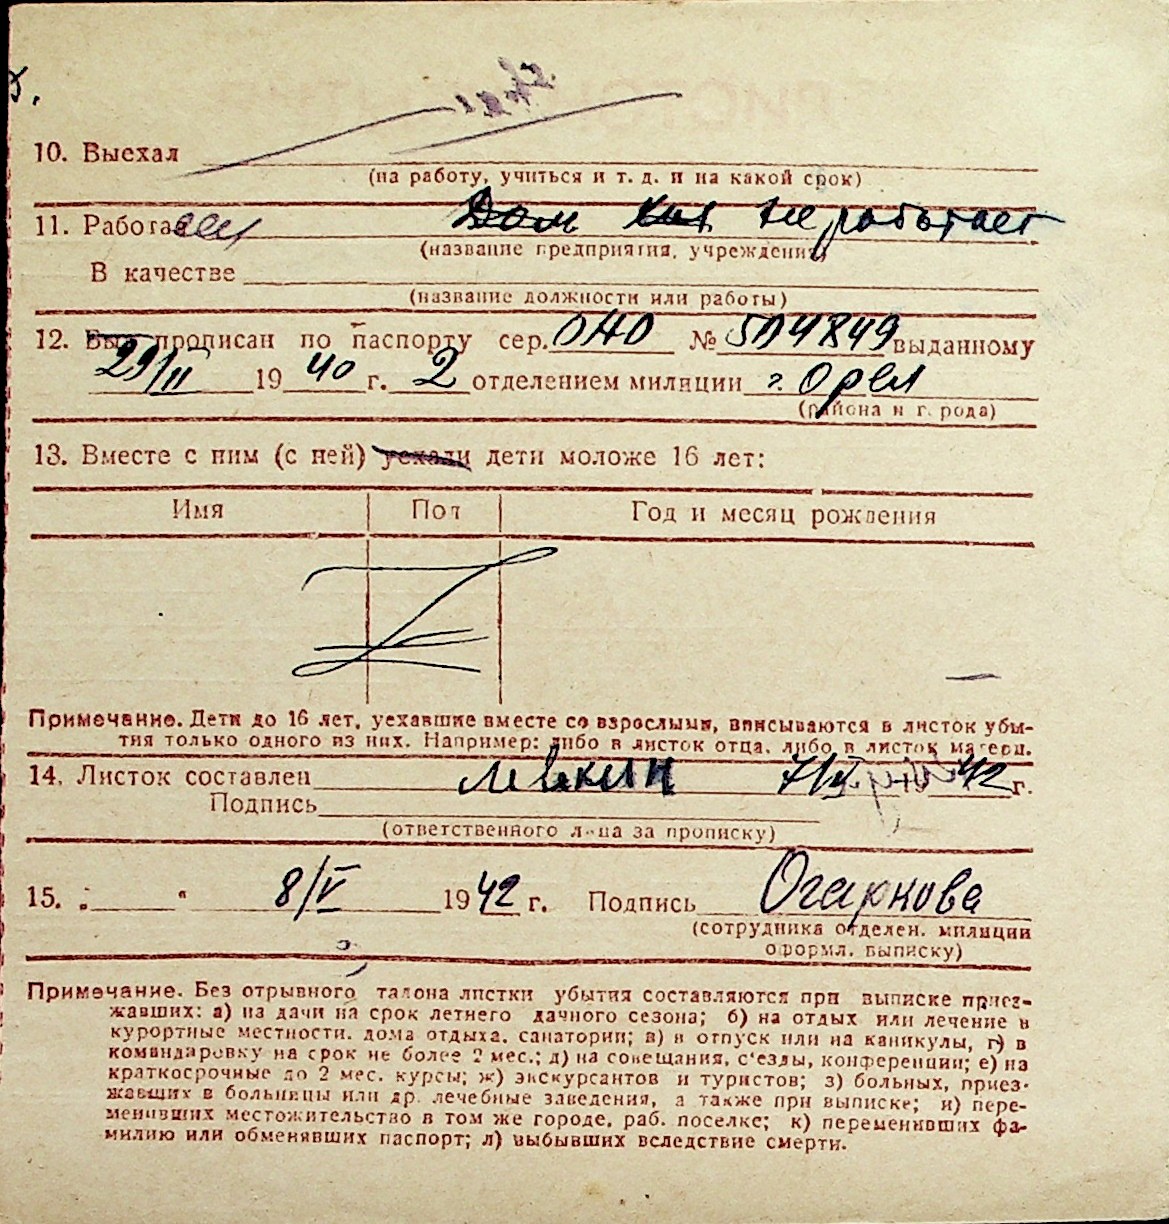 10. Выехал
(на работу, учиться и т. д. и на какой срок)
11. Работает Дом хоз не работает
(название предприятия, учреждения)
В качестве
(название должности или работы)
12. Был прописан по паспорту сер. ОНО № 504849 выданному
29/II 1940 г. 2 отделением милиции г. Орел
(района и города)
13. Вместе с ним (с ней) уехали дети моложе 16 лет:
Имя Пол Год и месяц рождения
Примечание. Дети до 16 лет, уехавшие вместе со взрослыми, вписываются в листок убы-
тия только одного из них. Например: либо в листок отца, либо в листок матери.
14. Листок составлен Левкин 7/V 42 г.
Подпись
(ответственного лица за прописку)
15. „ “ 8/V 1942 г. Подпись Огаркова
(сотрудника отделен. милиции
оформл. выписку)
Примечание. Без отрывного талона листки убытия составляются при выписке приез-
жавших: а) из дачи на срок летнего дачного сезона; б) на отдых или лечение в
курортные местности, дома отдыха, санатории; в) в отпуск или на каникулы, г) в
командировку на срок не более 2 мес.; д) на совещания, с'езды, конференции; е) на
краткосрочные до 2 мес. курсы; ж) экскурсантов и туристов; з) больных, приез-
жавщих в больницы или др. лечебные заведения, а также при выписке; и) пере-
менивших местожительство в том же городе, раб. поселке; к) переменивших фа-
милию или обменявших паспорт; л) выбывших вследствие смерти.